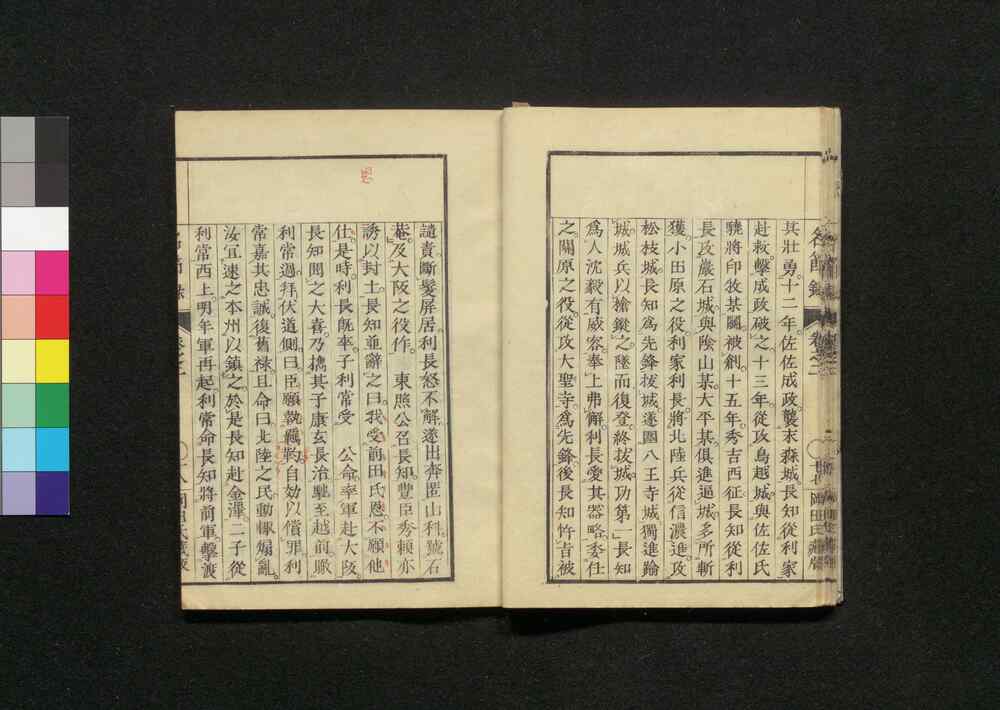 名節錄 卷之二 岡田氏藏版
其壯勇十二年佐佐成政襲末森城長知從利家
赴救擊成政破之十三年從攻鳥越城與佐佐氏
驍將印牧某鬭被創十五年秀吉西征長知從利
長攻巖石城與陰山某大平某俱進逼城多所斬
獲小田原之役利家利長將北陸兵從信濃進攻
松枝城長知爲先鋒拔城遂圍八王寺城獨進踰
城城兵以槍鏦之墜而復登終拔城功第一長知
爲人沈毅有威容奉上弗懈利長愛其器略委任
之關原之役從攻大聖寺爲先鋒後長知忤旨被
譴責斷髮屏居利長怒不解遂出奔匿山科號石
菴及大阪之役作 東照公召長知豐臣秀賴亦
誘以封土長知並辭之曰我受前田氏恩不願他
仕是時利長旣卒子利常受 公命率軍赴大阪
長知聞之大喜乃攜其子康玄長治馳至越前瞰
利常過拜伏道側曰臣願執羈靮自効以償罪利
常嘉其忠誠復舊祿且命曰北陸之民動輒煽亂
汝宜速之本州以鎭之於是長知赴金澤二子從
利常西上明年軍再起利常命長知將前軍擊渡